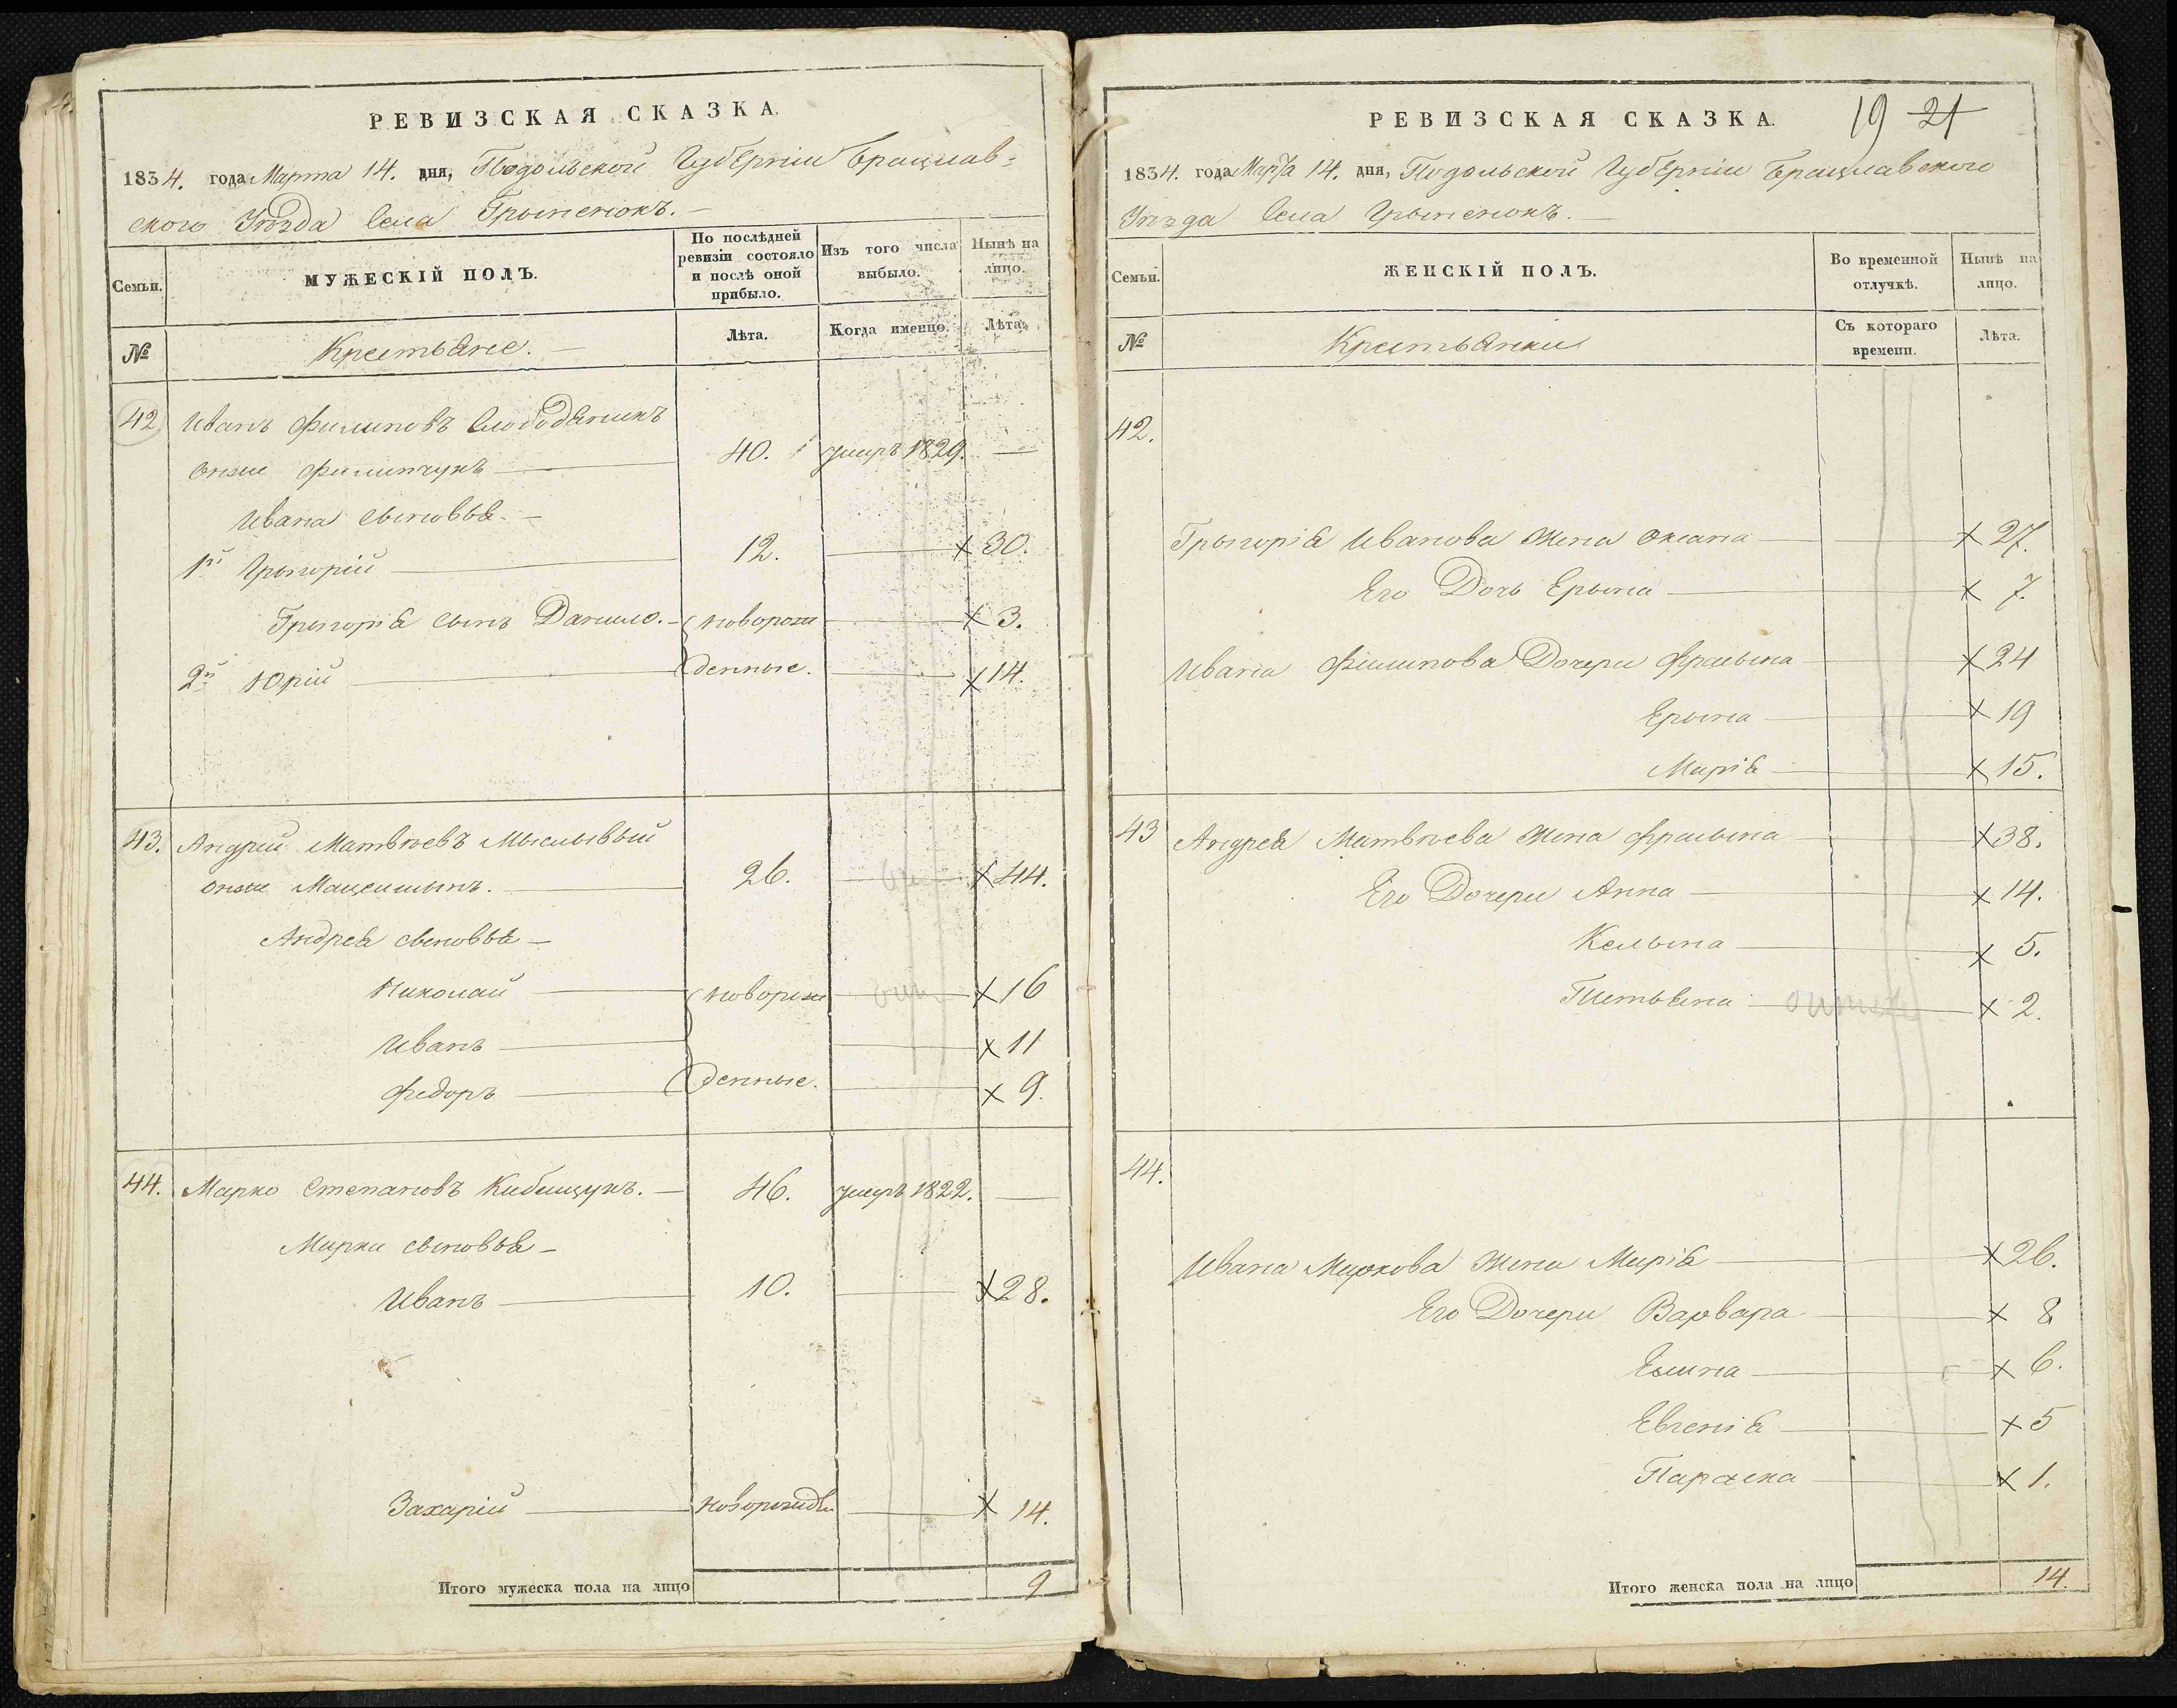 РЕВИЗСКАЯ СКАЗКА.
1834. года Марта 14. дня, Подольской Губерніи Брацлав-
ского Уѣзда Села Грыненокъ. —
Семьи.
МУЖЕСКІЙ ПОЛЪ.
По послѣдней ревизіи состояло и послѣ оной прибыло.
Изъ того числа выбыло.
Нынѣ на лицо.
№
Крестьяне. —
Лѣта.
Когда именно.
Лѣта.
42 Иванъ Филиповъ Слободяникъ
онже Филипчукъ — 40. умеръ 1829. —
Ивана сыновья. —
1й Грыгорій — 12. — х 30.
Грыгорія сынъ Данило. — новорож — х 3.
2й Юрій — денные. — х 14.
43. Андрей Матвѣевъ Мыслывый
онже Мацишынъ. — 26. — х 44.
Андрея сыновья —
Николай — новорож — х 16
Иванъ — х 11
Федоръ — денные. — х 9.
44. Марко Степановъ Кибищукъ. — 46. умеръ 1822. —
Марка сыновья —
Иванъ — 10. — х 28.
Захарій — новорожден — х 14.
Итого мужеска пола на лицо 9
РЕВИЗСКАЯ СКАЗКА.
19 21
1834. года Марта 14. дня, Подольской Губерніи Брацлавского
Уѣзда Села Грыненокъ. —
Семьи.
ЖЕНСКІЙ ПОЛЪ.
Во временной отлучкѣ.
Нынѣ на лицо.
№
Крестьянки
Съ котораго времени.
Лѣта.
42.
Грыгорія Иванова жена Оксана — х 27.
Его Дочь Ерына — х 7.
Ивана Филипова Дочери Фросына — х 24
Ерына — х 19
Марія — х 15.
43 Андрея Матвѣева жена Фросына — х 38.
Его Дочери Анна — х 14.
— х 5.
Тетьяна — х 2.
44.
Ивана Маркова жена Марія — х 26.
Его Дочери Варвара — х 8
— х 6.
Евгенія — х 5
Параска — х 1.
Итого женска пола на лицо 14.